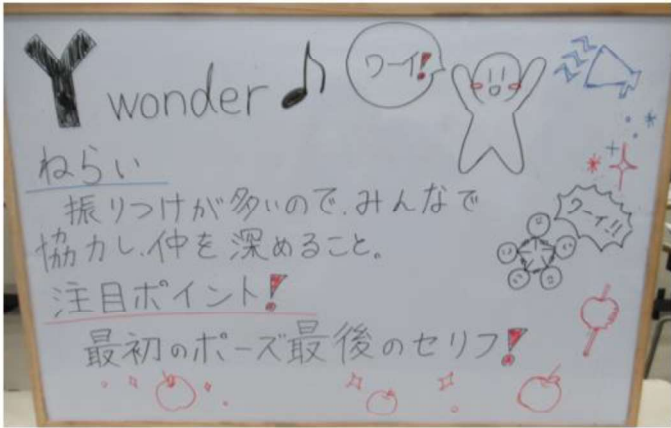 Y wonder♪
ワーイ!
ねらい
振りつけが多いので、みんなで
協力し、仲を深めること。
ワーイ!!
注目ポイント!
最初のポーズ最後のセリフ!